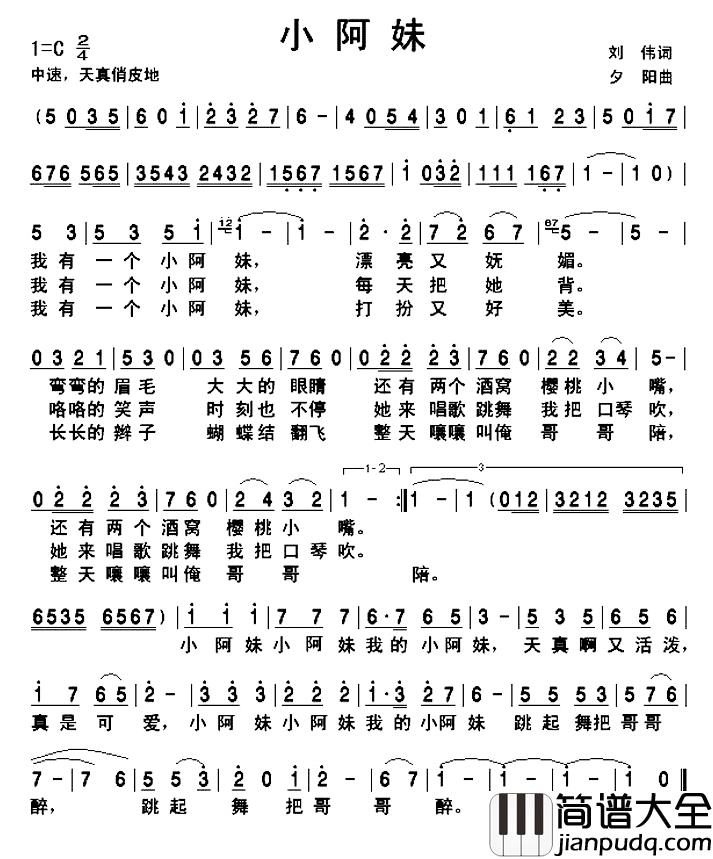 小阿妹
1=C 2/4
刘伟词
中速，天真俏皮地
夕阳曲
(5 0 3 5|6 0 1|2 3 2 7|6 -|4 0 5 4|3 0 1|6 1 2 3|5 0 1 7|
676 565|3543 2432|1567 1567|1 032|111 167|1 -|1 0)|
5 3|5 3 5 1|12 1 -|1 -|2 · 2|7 2 6 7|67 5 -|5 -|
我有一个小阿妹，漂亮又妩媚。
我有一个小阿妹，每天把她背。
我有一个小阿妹，打扮又好美。
0 3 2 1|5 3 0|0 3 5 6|7 6 0|0 2 2 2 3|7 6 0|2 2 3 4|5 -|
弯弯的眉毛 大大的眼睛 还有两个酒窝樱桃小嘴，
咯咯的笑声 时刻也不停 她来唱歌跳舞我把口琴吹，
长长的辫子 蝴蝶结翻飞 整天嚷嚷叫俺哥哥陪，
1-2
3
0 2 2 2 3|7 6 0|2 4 3 2|1 - :||1 -|1 (012|3212 3235|
还有两个酒窝樱桃小嘴。
她来唱歌跳舞我把口琴吹。
整天嚷嚷叫俺哥哥陪。
6535 6567)|1 1 1|7 7 7|6 · 7 6 5|3 -|5 3 5|6 5 6|
小阿妹小阿妹我的小阿妹，天真啊又活泼，
1 7 6 5|2 -|3 3 3|2 2 2|1 · 3 7 6|5 5 3|5 7 6|
真是可爱，小阿妹小阿妹我的小阿妹 跳起舞把哥哥
7 -|7 6|5 5 3|2 0 1|2 -|2 -|1 -|1 -|1 0||
醉，跳起舞把哥哥醉。
简谱大全
jianpudq.com